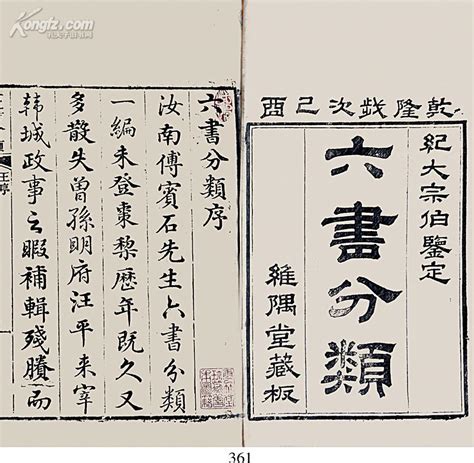 乾隆歲次己酉
紀大宗伯鑒定
六書分類
維隅堂藏板
六書分類序
汝南傅賓石先生六書分類
一編未登棗黎歷年既久又
多散失曾孫明府汪平來宰
韓城政事之暇補輯殘賸而
王序
Kongfz.com
361